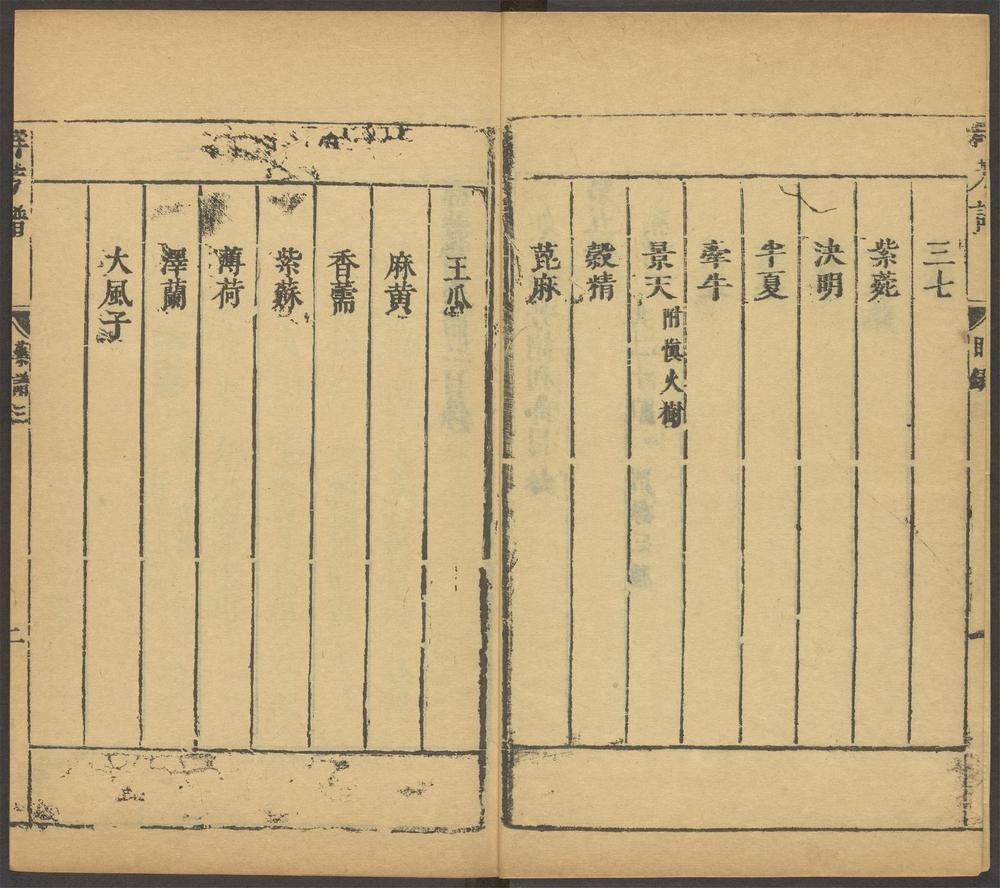 三七
紫菀
決明
半夏
牽牛
景天 附慎火樹
穀精
蓖麻
王瓜
麻黃
香薷
紫蘇
薄荷
澤蘭
大風子
目錄
一
群芳譜
藥譜三
二